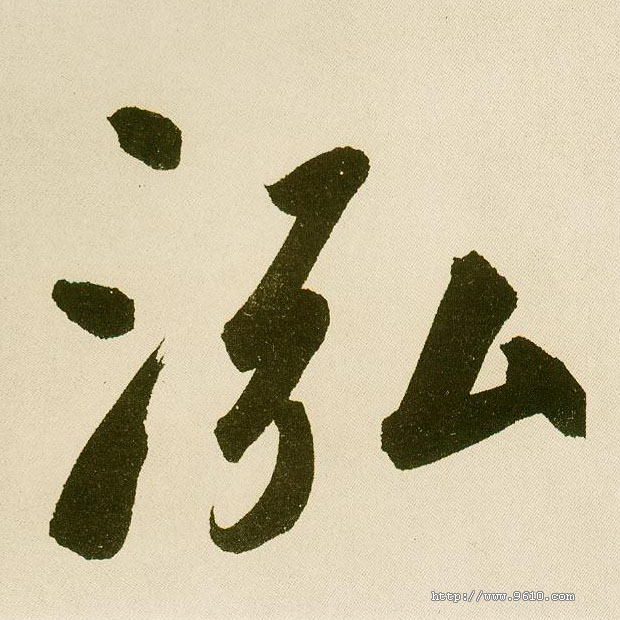 泓
http://www.9610.com